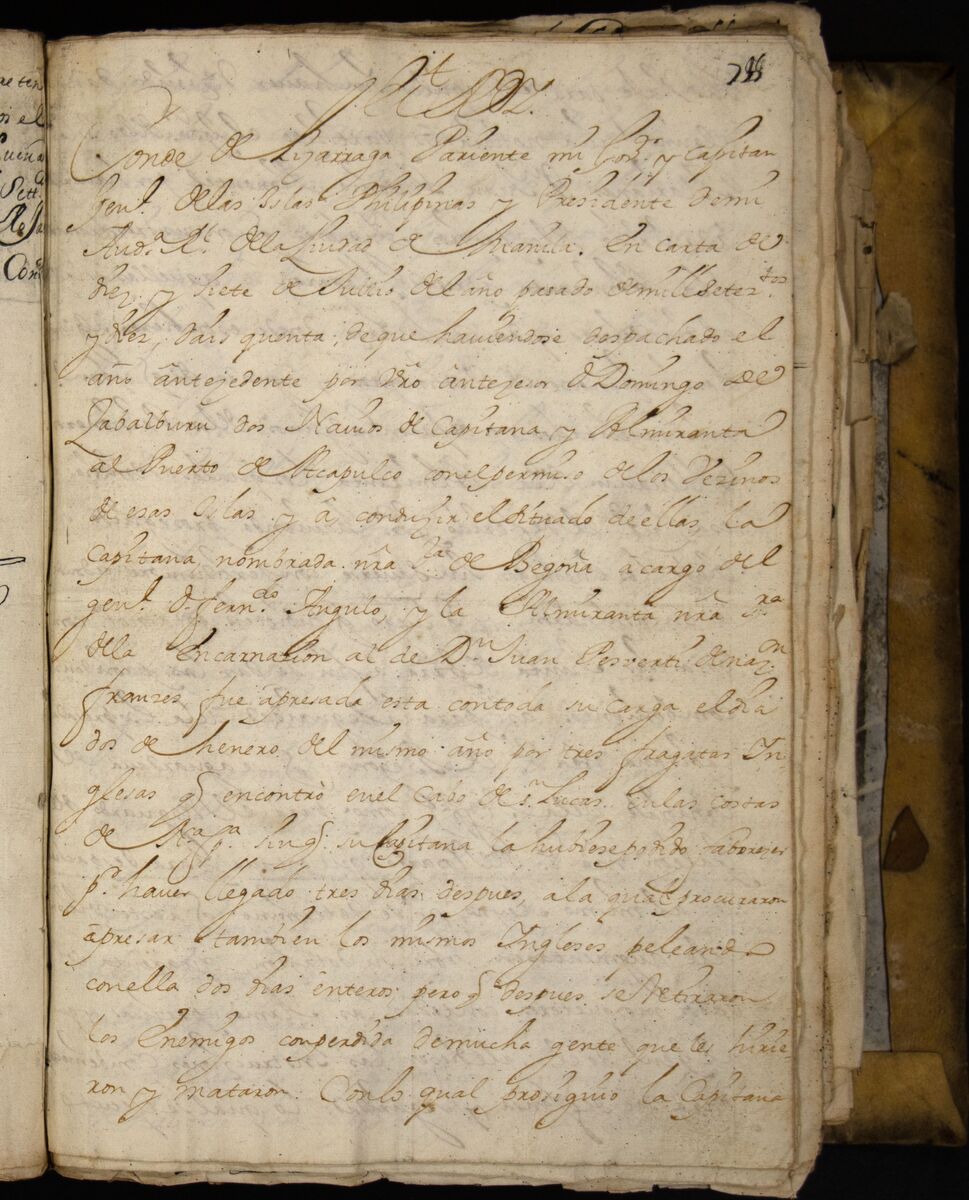 Conde de Lizarraga Pariente mi Gov.r y Capitan
Gen.l de las Islas Philipinas y Presidente de mi
Aud.a R.l de la Ciudad de Manila. En carta de
diez y siete de Jullio del año pasado de mill setez.tos
y diez, dais quenta, de que haviendose despachado el
año antezedente por vr̃o antezesor D. Domingo de
Zabalburu dos Navios de Capitana y Almiranta
al Puerto de Acapulco con el permiso de los Vezinos
de esas Islas y â conduzir el situado de ellas, la
Capitana nombrada nr̃a S.ra de Begoña a cargo del
gen.l D. Fern.do Angulo, y la Almiranta nr̃a S.ra
de la Encarnazion al de D.n Juan de naz.on
franzes fue apresada esta con toda su carga el dia
dos de henero del mismo año por tres fragatas In-
glesas q̃ encontrò en el Cabo de s.n Lucas en las costas
de sin q̃ su Capitana la hubiese podido faborezer
p.r haver llegado tres dias despues, a la qual procuraron
apresar tambien los mismos Ingleses peleando
con ella dos dias enteros pero q̃ despues se Retiraron
los Enemigos con perdida de mucha gente que les hirie-
ron y mataron. Con lo qual prosiguio la Capitana